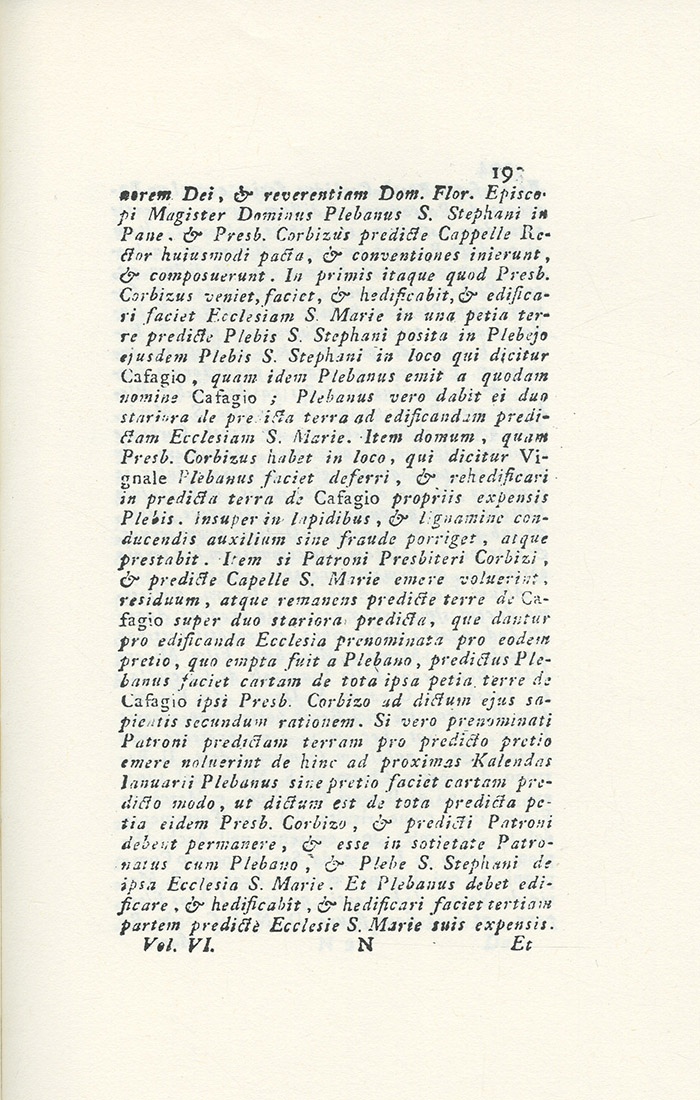 193
norem Dei, & reverentiam Dom. Flor. Episco-
pi Magister Dominus Plebanus S. Stephani in
Pane. & Presb. Corbizus predicte Cappelle Re-
ctor huiusmodi pacta, & conventiones inierunt,
& composuerunt. In primis itaque quod Presb.
Corbizus veniet, faciet, & hedificabit, & edifica-
ri faciet Ecclesiam S. Marie in una petia ter-
re predicte Plebis S. Stephani posita in Plebejo
ejusdem Plebis S. Stephani in loco qui dicitur
Cafagio, quam idem Plebanus emit a quodam
nomine Cafagio; Plebanus vero dabit ei duo
stariora de predicta terra ad edificandam predi-
ctam Ecclesiam S. Marie. Item domum, quam
Presb. Corbizus habet in loco, qui dicitur Vi-
gnale Plebanus faciet deferri, & rehedificari
in predicta terra de Cafagio propriis expensis
Plebis. insuper in lapidibus, & lignamine con-
ducendis auxilium sine fraude porriget, atque
prestabit. Item si Patroni Presbiteri Corbizi,
& predicte Capelle S. Marie emere voluerint,
residuum, atque remanens predicte terre de Ca-
fagio super duo stariora predicta, que dantur
pro edificanda Ecclesia prenominata pro eodem
pretio, quo empta fuit a Plebano, predictus Ple-
banus faciet cartam de tota ipsa petia terre de
Cafagio ipsi Presb. Corbizo ad dictum ejus sa-
pientis secundum rationem. Si vero prenominati
Patroni predictam terram pro predicto pretio
emere noluerint de hinc ad proximas Kalendas
Ianuarii Plebanus sine pretio faciet cartam pre-
dicto modo, ut dictum est de tota predicta pe-
tia eidem Presb. Corbizo, & predicti Patroni
debent permanere, & esse in sotietate Patro-
natus cum Plebano, & Plebe S. Stephani de
ipsa Ecclesia S. Marie. Et Plebanus debet edi-
ficare, & hedificabit, & hedificari faciet tertiam
partem predicte Ecclesie S. Marie suis expensis.
Vol. VI. N Et